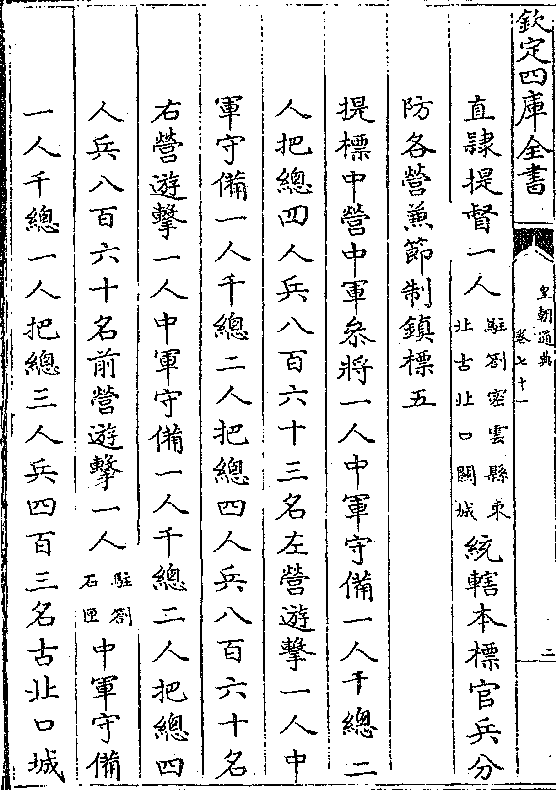 欽定四庫全書
皇朝通典
卷七十一
二
直隷提督一人駐劄密雲縣東北古北口關城統轄本標官兵分
防各營兼節制鎮標五
提標中營中軍叅將一人中軍守備一人千總二
人把總四人兵八百六十三名左營遊擊一人中
軍守備一人千總二人把總四人兵八百六十名
右營遊擊一人中軍守備一人千總二人把總四
人兵八百六十名前營遊擊一人駐劄石匣中軍守備
一人千總一人把總三人兵四百三名古北口城